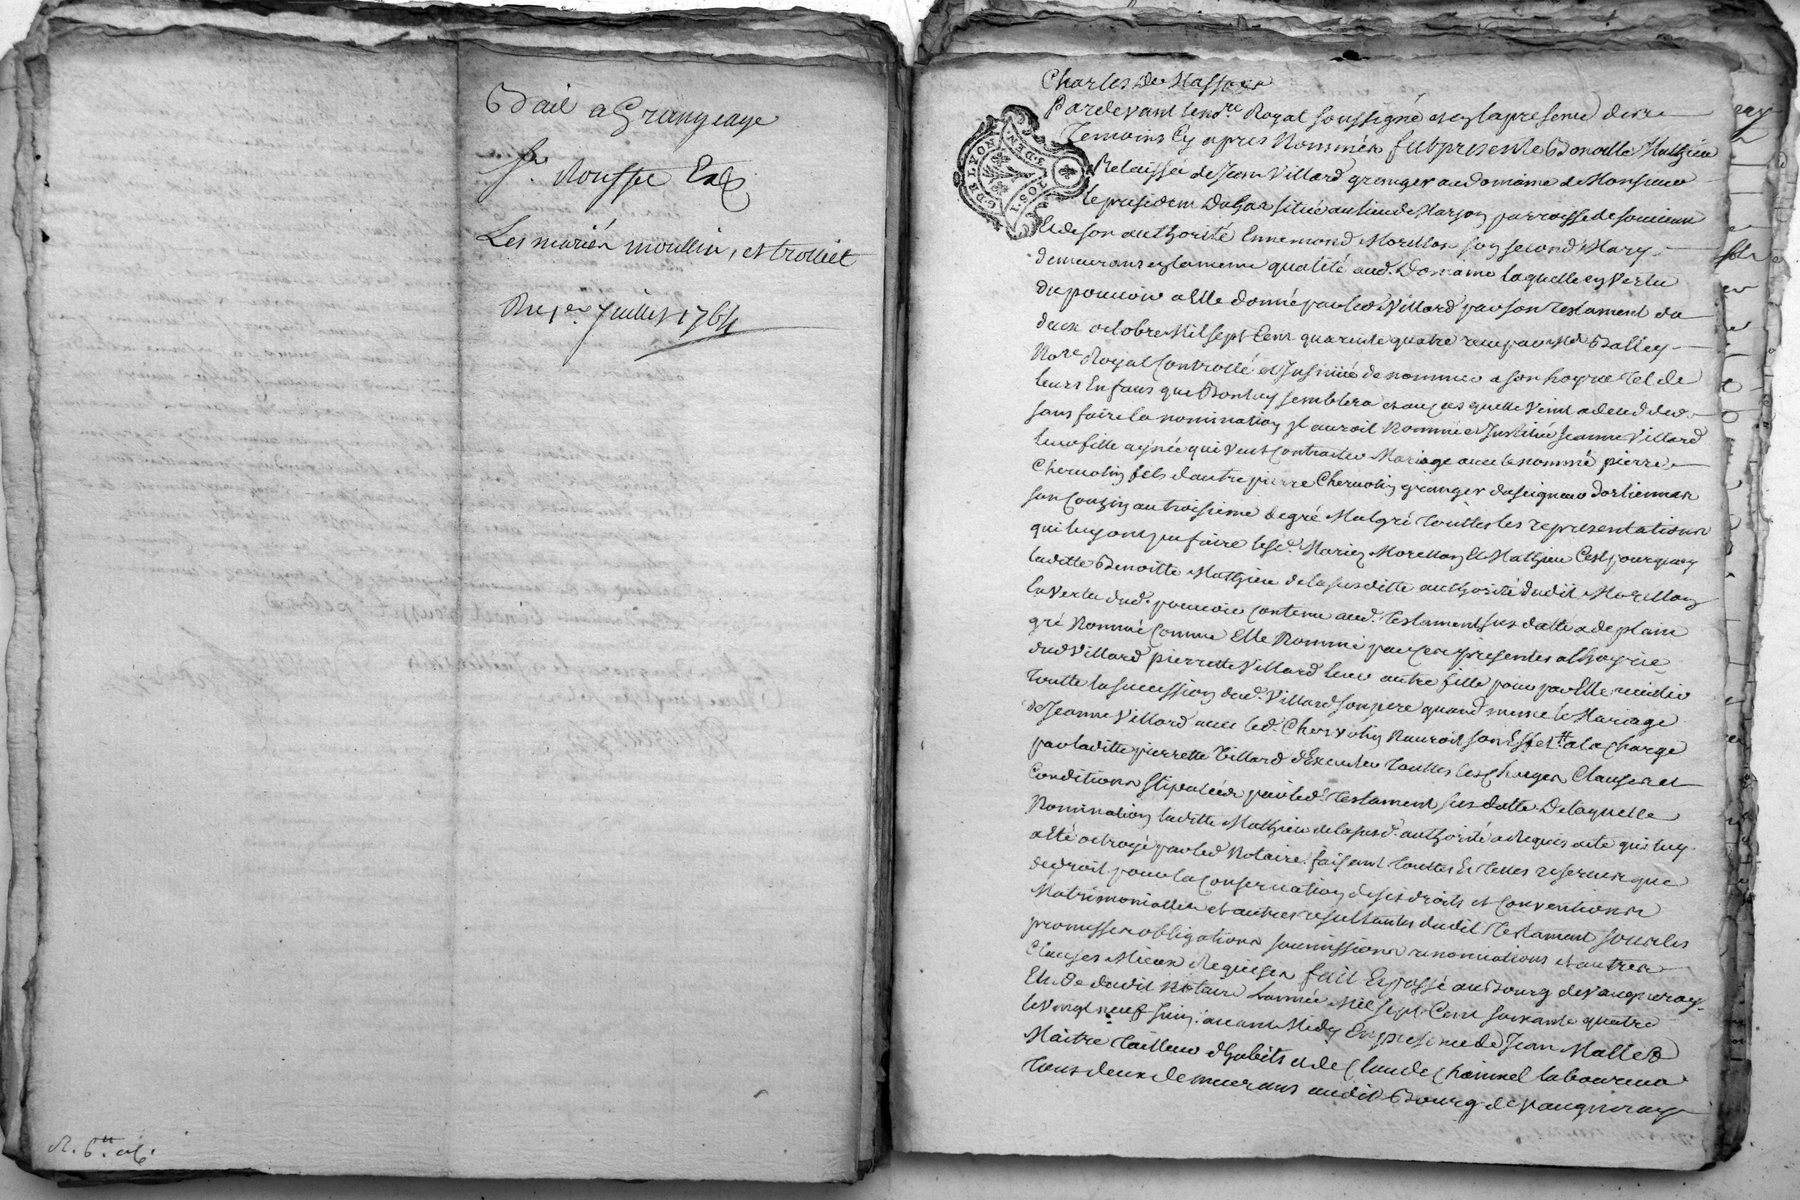 Bail a Grangeage
Sr. Rousse
Les mariés moullin, et trolliet
Du 1er Juillet 1764
Charles de Masso
Pardevant le no.re Royal soussigné et en la presence des
Temoins Cy apres Nommés fut presente Benoitte Mathieu
Relaissée de Jean Villard granger au domaine de Monsieur
le president Dugas situé au lieu de Marjon parroisse de soucieux
Et de son authorité Ennemond Morellon son second Mary
demeurans en la meme qualité aud. Domaine laquelle en Vertu
du pouvoir a Elle donné par led. Villard par son Testament du
deux octobre Mil sept Cent quarente quatre receu par Me Balley
No.re Royal Controllé et Insinué de nommer a son hoyrie Tel de
leurs Enfans que Bon luy semblera et au cas quelle vint a deceder
sans faire la nomination Jl auroit Nommé et Jnstitué Jeanne Villard
leur fille aynée qui veut Contracter Mariage avec le nommé pierre
Chervolin fils d'autre pierre Chervolin granger du seigneur dorlienas
son Couzin au troisieme degré Malgré Touttes les representations
qui luy ont pu faire lesd. Mariez Morellon Et Mathieu C'est pourquoy
laditte Benoitte Mathieu de la susditte authorité dudit Morellon
En Vertu dud. pouvoir contenu aud. Testament sus datté a de plain
gré Nommé Comme Elle Nomme par Ces presentes a l'hoyrie
dud. Villard pierrette Villard leur autre fille pour par Elle receuillir
Toutte la succession dud. Villard son pere quand meme le Mariage
de Jeanne Villard avec led. Chervolin Nauroit son Effet a la Charge
par laditte pierrette Villard d'Executer Touttes les Charges Clauses et
Conditions stipulées par led. Testament sus datté De laquelle
Nomination laditte Mathieu de la susd. authorité a Requis acte qui luy
a Eté octroyé par led. Notaire faisant Touttes Et Telles reserves que
de droit pour la Conservation de ses droits et Conventions
Matrimonialles et autres resultantes dudit Testament sous les
promesses obligations soumissions renonciations et autres
Clauses Mieux Requises fait Et passé au Bourg de Vaugneray
Etude dudit Notaire L'année Mil sept Cent soixante quatre
le vingt neuf Juin avant Midy En presence de Jean Mallet
Maitre Tailleur d'habits et de Claude Chaumel laboureur
Tous deux demeurans audit Bourg de Vaugneray
GD RLYON
2.DEN
1.SOL